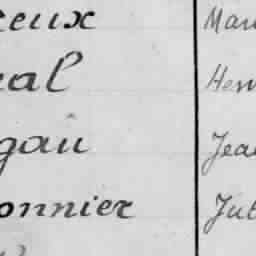 reux Mau
eal Hen
gau Jea
onnier Jul